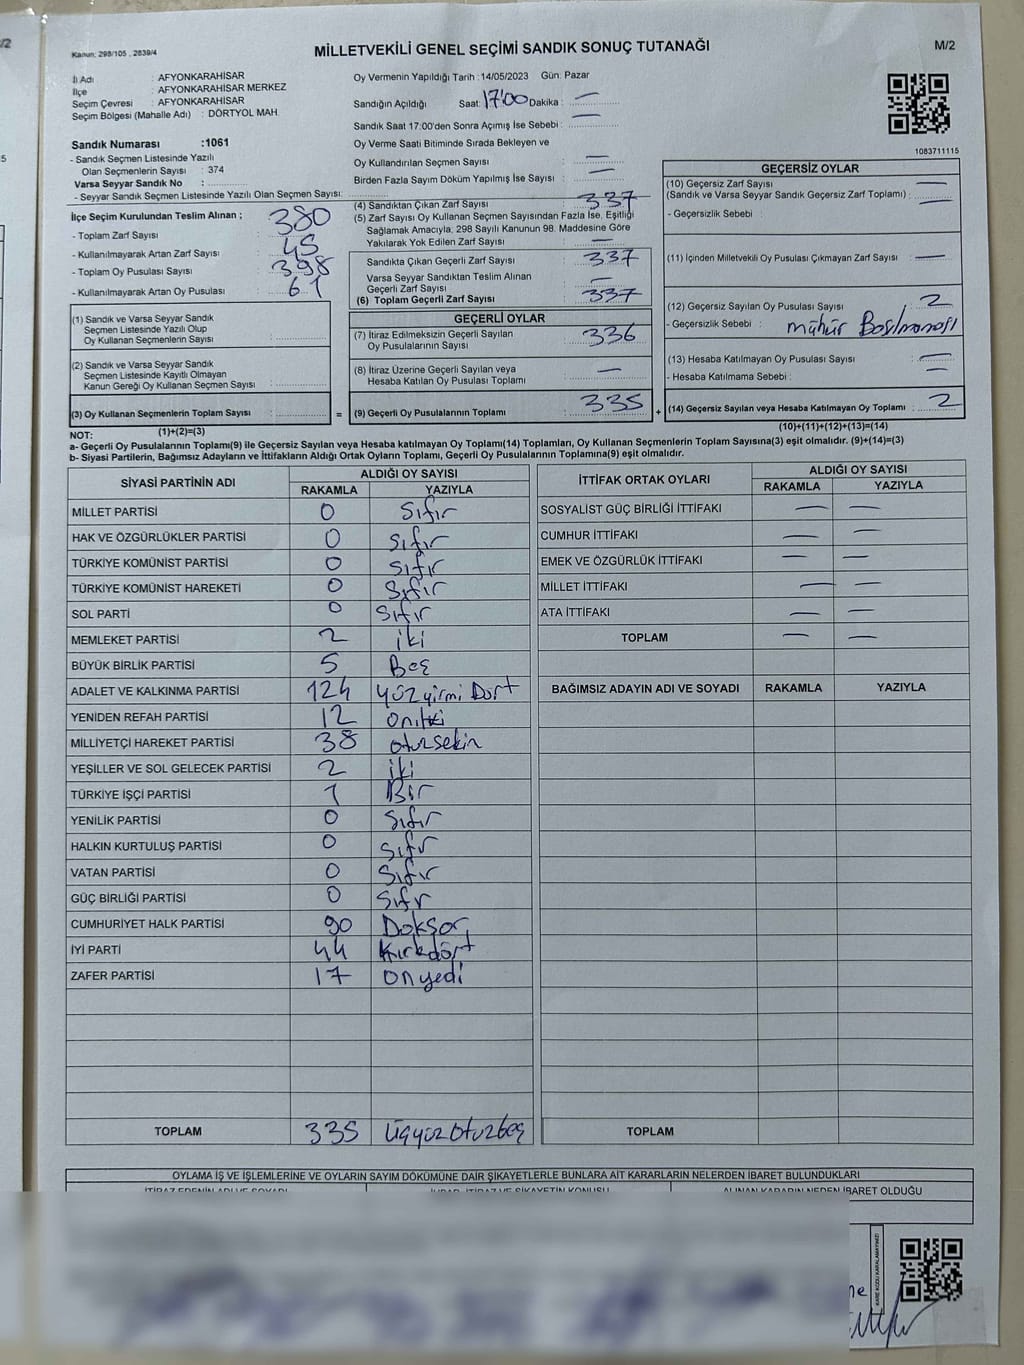 /2
5
Kanun: 298/105 , 2839/4
MİLLETVEKİLİ GENEL SEÇİMİ SANDIK SONUÇ TUTANAĞI
M/2
İl Adı : AFYONKARAHİSAR
İlçe : AFYONKARAHİSAR MERKEZ
Seçim Çevresi : AFYONKARAHİSAR
Seçim Bölgesi (Mahalle Adı) : DÖRTYOL MAH.
Sandık Numarası :1061
- Sandık Seçmen Listesinde Yazılı
Olan Seçmenlerin Sayısı : 374
Varsa Seyyar Sandık No :
- Seyyar Sandık Seçmen Listesinde Yazılı Olan Seçmen Sayısı:
Oy Vermenin Yapıldığı Tarih :14/05/2023 Gün: Pazar
Sandığın Açıldığı Saat: 17:00 Dakika : —
Sandık Saat 17:00'den Sonra Açılmış İse Sebebi : —
Oy Verme Saati Bitiminde Sırada Bekleyen ve
Oy Kullandırılan Seçmen Sayısı : —
Birden Fazla Sayım Döküm Yapılmış İse Sayısı : —
1083711115
İlçe Seçim Kurulundan Teslim Alınan ;
- Toplam Zarf Sayısı : 380
- Kullanılmayarak Artan Zarf Sayısı : 45
- Toplam Oy Pusulası Sayısı : 398
- Kullanılmayarak Artan Oy Pusulası : 61
(1) Sandık ve Varsa Seyyar Sandık
Seçmen Listesinde Yazılı Olup
Oy Kullanan Seçmenlerin Sayısı :
(2) Sandık ve Varsa Seyyar Sandık
Seçmen Listesinde Kayıtlı Olmayan
Kanun Gereği Oy Kullanan Seçmen Sayısı :
(3) Oy Kullanan Seçmenlerin Toplam Sayısı :
(1)+(2)=(3)
(4) Sandıktan Çıkan Zarf Sayısı : 337
(5) Zarf Sayısı Oy Kullanan Seçmen Sayısından Fazla İse, Eşitliği
Sağlamak Amacıyla, 298 Sayılı Kanunun 98. Maddesine Göre
Yakılarak Yok Edilen Zarf Sayısı : —
Sandıkta Çıkan Geçerli Zarf Sayısı : 337
Varsa Seyyar Sandıktan Teslim Alınan
Geçerli Zarf Sayısı : —
(6) Toplam Geçerli Zarf Sayısı : 337
GEÇERLİ OYLAR
(7) İtiraz Edilmeksizin Geçerli Sayılan
Oy Pusulalarının Sayısı : 336
(8) İtiraz Üzerine Geçerli Sayılan veya
Hesaba Katılan Oy Pusulası Toplamı : —
= (9) Geçerli Oy Pusulalarının Toplamı : 335 +
GEÇERSİZ OYLAR
(10) Geçersiz Zarf Sayısı : —
(Sandık ve Varsa Seyyar Sandık Geçersiz Zarf Toplamı) : —
- Geçersizlik Sebebi :
(11) İçinden Milletvekili Oy Pusulası Çıkmayan Zarf Sayısı : —
(12) Geçersiz Sayılan Oy Pusulası Sayısı : 2
- Geçersizlik Sebebi : mühür Basılmaması
(13) Hesaba Katılmayan Oy Pusulası Sayısı : —
- Hesaba Katılmama Sebebi : —
(14) Geçersiz Sayılan veya Hesaba Katılmayan Oy Toplamı : 2
(10)+(11)+(12)+(13)=(14)
NOT:
a- Geçerli Oy Pusulalarının Toplamı(9) ile Geçersiz Sayılan veya Hesaba katılmayan Oy Toplamı(14) Toplamları, Oy Kullanan Seçmenlerin Toplam Sayısına(3) eşit olmalıdır. (9)+(14)=(3)
b- Siyasi Partilerin, Bağımsız Adayların ve İttifakların Aldığı Ortak Oyların Toplamı, Geçerli Oy Pusulalarının Toplamına(9) eşit olmalıdır.
SİYASİ PARTİNİN ADI ALDIĞI OY SAYISI
RAKAMLA YAZIYLA
MİLLET PARTİSİ 0 Sıfır
HAK VE ÖZGÜRLÜKLER PARTİSİ 0 Sıfır
TÜRKİYE KOMÜNİST PARTİSİ 0 Sıfır
TÜRKİYE KOMÜNİST HAREKETİ 0 Sıfır
SOL PARTİ 0 Sıfır
MEMLEKET PARTİSİ 2 iki
BÜYÜK BİRLİK PARTİSİ 5 Beş
ADALET VE KALKINMA PARTİSİ 124 yüzyirmi Dört
YENİDEN REFAH PARTİSİ 12 oniki
MİLLİYETÇİ HAREKET PARTİSİ 38 otuzsekiz
YEŞİLLER VE SOL GELECEK PARTİSİ 2 iki
TÜRKİYE İŞÇİ PARTİSİ 1 Bir
YENİLİK PARTİSİ 0 Sıfır
HALKIN KURTULUŞ PARTİSİ 0 Sıfır
VATAN PARTİSİ 0 Sıfır
GÜÇ BİRLİĞİ PARTİSİ 0 Sıfır
CUMHURİYET HALK PARTİSİ 90 Doksan
İYİ PARTİ 44 Kırkdört
ZAFER PARTİSİ 17 Onyedi
TOPLAM 335 üçyüzotuzbeş
İTTİFAK ORTAK OYLARI ALDIĞI OY SAYISI
RAKAMLA YAZIYLA
SOSYALİST GÜÇ BİRLİĞİ İTTİFAKI — —
CUMHUR İTTİFAKI — —
EMEK VE ÖZGÜRLÜK İTTİFAKI — —
MİLLET İTTİFAKI — —
ATA İTTİFAKI — —
TOPLAM — —
BAĞIMSIZ ADAYIN ADI VE SOYADI RAKAMLA YAZIYLA
TOPLAM
OYLAMA İŞ VE İŞLEMLERİNE VE OYLARIN SAYIM DÖKÜMÜNE DAİR ŞİKAYETLERLE BUNLARA AİT KARARLARIN NELERDEN İBARET BULUNDUKLARI
İTİRAZ EDENİN ADI VE SOYADI İHBAR, İTİRAZ VE ŞİKAYETİN KONUSU ALINAN KARARIN NEDEN İBARET OLDUĞU
KARE KODU KARALAMAYINIZ!
ne